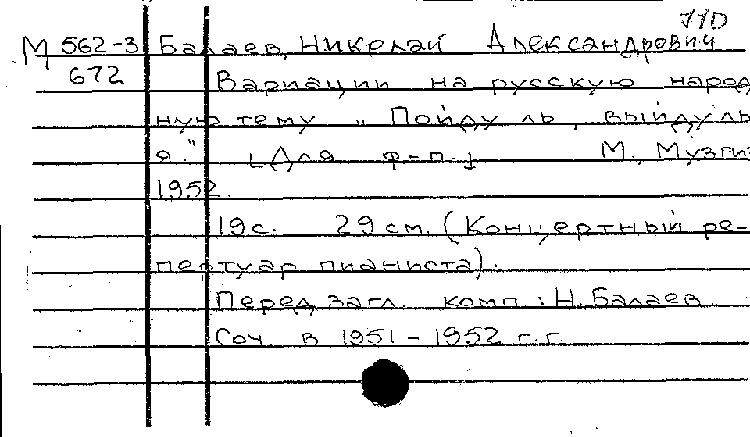 11D
М 562-3 Балаев, Николай Александрович
672 Вариации на русскую народ
ную тему „Пойду ль, выйду ль
я." [Для ф-п.] М., Музгиз
1952.
19 с. 29 см. (Концертный ре-
пертуар пианиста).
Перед загл. комп.: Н. Балаев
Соч. в 1951-1952 г.г.